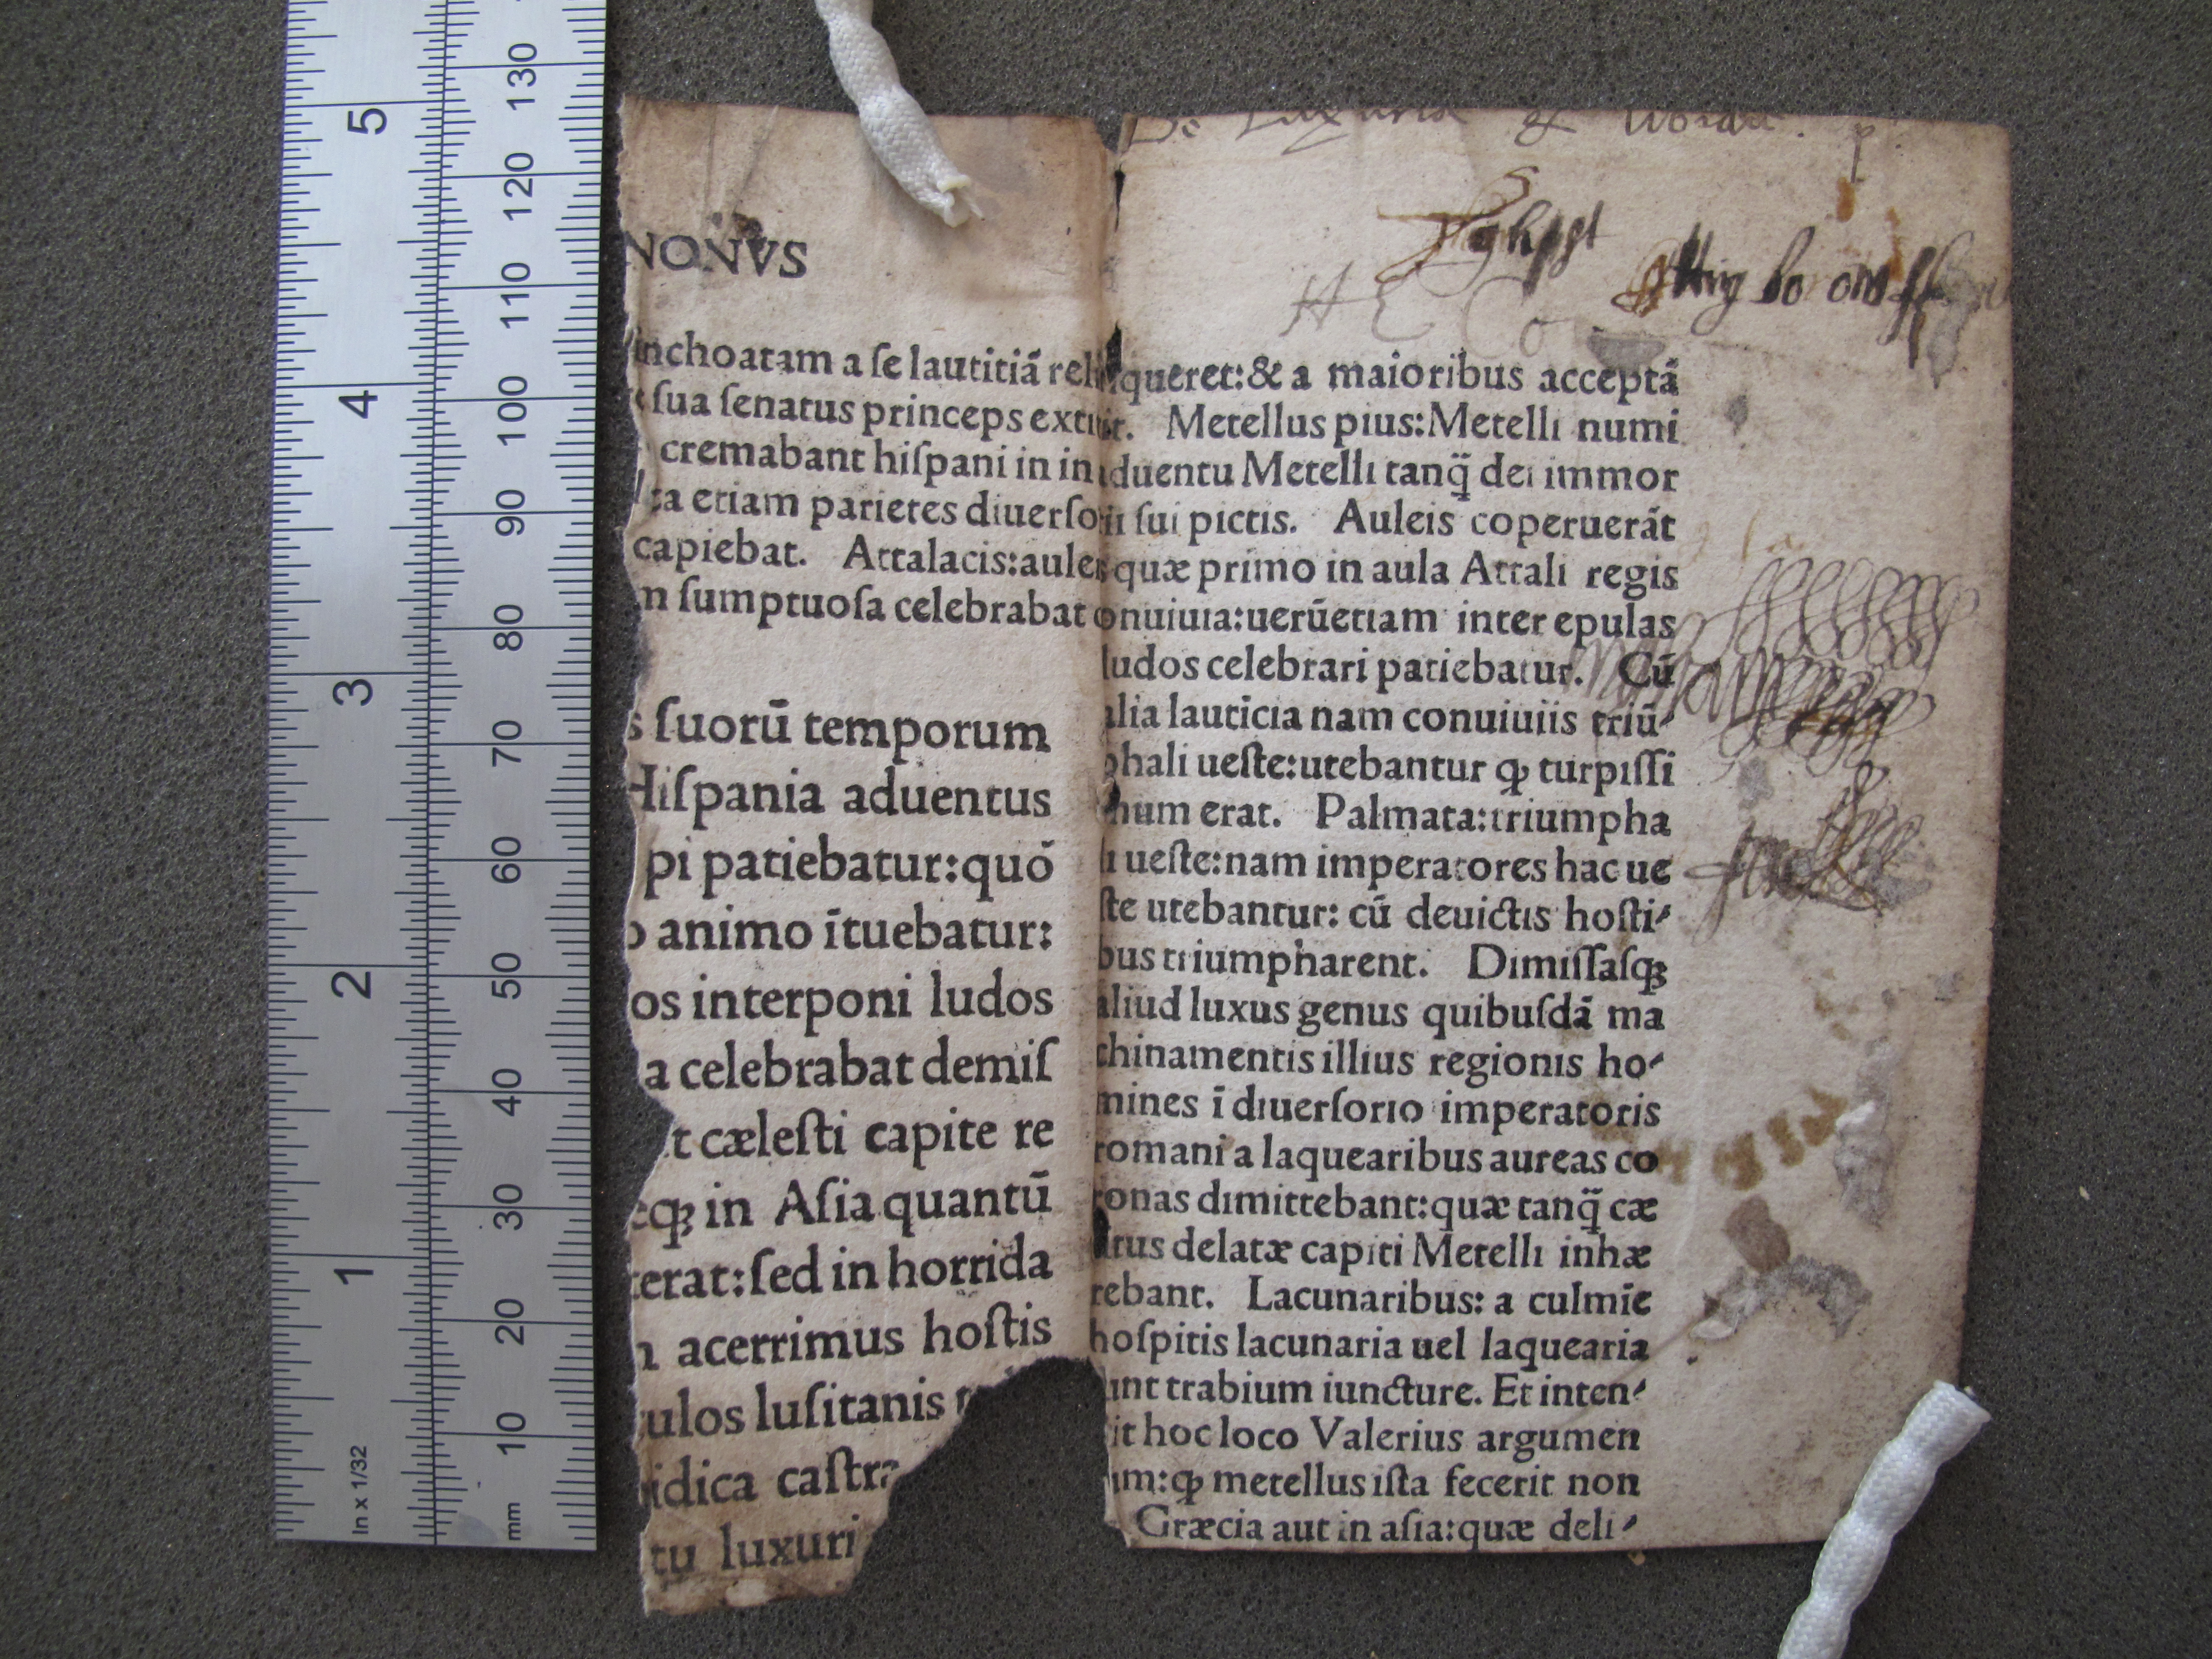 De Luxuria & libidi
NONVS
inchoatam a ſe lautitiā reliqueret:& a maioribus acceptā
ſua ſenatus princeps extitit. Metellus pius:Metelli numi
cremabant hiſpani in in aduentu Metelli tanq̄ dei immor
ta etiam parietes diuerſorii ſui pictis. Auleis coperuerāt
capiebat. Attalacis:auleis quæ primo in aula Attali regis
m ſumptuoſa celebrabat conuiuia:uerūetiam inter epulas
s ſuorū temporum
Hiſpania aduentus
pi patiebatur:quō
o animo ītuebatur:
os interponi ludos
a celebrabat demiſ
t cæleſti capite re
eqꝫ in Aſia quantū
terat:ſed in horrida
n acerrimus hoſtis
ulos luſitanis
idica caſtra
tu luxuri
ludos celebrari patiebatur. Cū
alia lauticia nam conuiuiis triū-
phali ueſte:utebantur ꝙ turpiſſi
mum erat. Palmata:triumpha
li ueſte:nam imperatores hac ue
ſte utebantur: cū deuictis hoſti-
bus triumpharent. Dimiſſaſqꝫ
aliud luxus genus quibuſdā ma
chinamentis illius regionis ho-
mines ī diuerſorio imperatoris
romani a laquearibus aureas co
ronas dimittebant:quæ tanq̄ cæ
litus delatæ capiti Metelli inhæ
rebant. Lacunaribus: a culmīe
hoſpitis lacunaria uel laquearia
ſunt trabium iuncture. Et inten-
dit hoc loco Valerius argumen
tum:ꝙ metellus iſta fecerit non
Græcia aut in aſia:quæ deli-
5 4 3 2 1 In x 1/32
130 120 110 100 90 80 70 60 50 40 30 20 10 mm